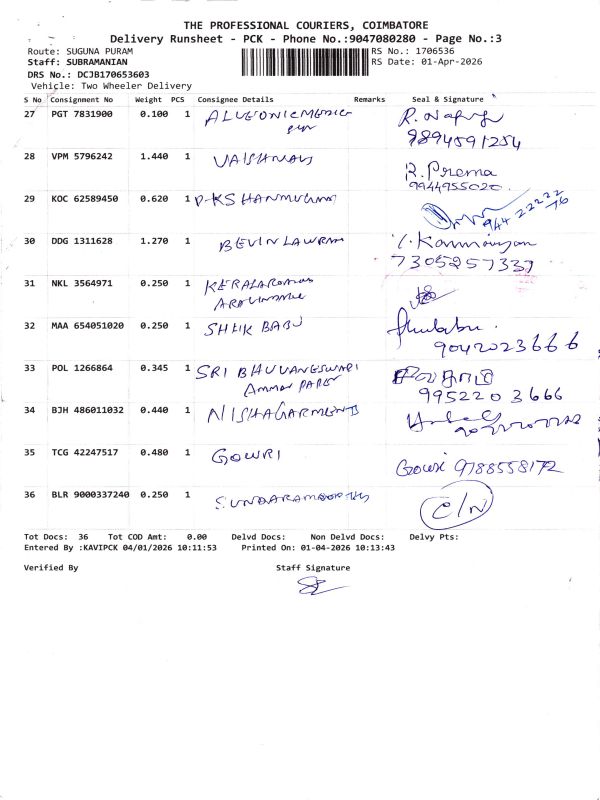 THE PROFESSIONAL COURIERS, COIMBATORE
Delivery Runsheet - PCK - Phone No.:9047080280 - Page No.:3
Route: SUGUNA PURAM RS No.: 1706536
Staff: SUBRAMANIAN RS Date: 01-Apr-2026
DRS No.: DCJB170653603
Vehicle: Two Wheeler Delivery
S No Consignment No Weight PCS Consignee Details Remarks Seal & Signature
27 PGT 7831900 0.100 1
9894591254
28 VPM 5796242 1.440 1 VAISHNAVI R. Prema
9944955020
29 KOC 62589450 0.620 1 P.K SHANMUGAM
944 22222 76
30 DDG 1311628 1.270 1 BEVIN LAWRAN
7305257337
31 NKL 3564971 0.250 1
32 MAA 654051020 0.250 1 SHEIK BABU
9042023666
33 POL 1266864 0.345 1 SRI BHUVANGESWARI
AMMAN PAPER 9952203666
34 BJH 486011032 0.440 1 NISHAGARMENTS
35 TCG 42247517 0.480 1 GOWRI Gowri 9788558172
36 BLR 9000337240 0.250 1 SUNDARAMOORTHY C/N
Tot Docs: 36 Tot COD Amt: 0.00 Delvd Docs: Non Delvd Docs: Delvy Pts:
Entered By :KAVIPCK 04/01/2026 10:11:53 Printed On: 01-04-2026 10:13:43
Verified By Staff Signature